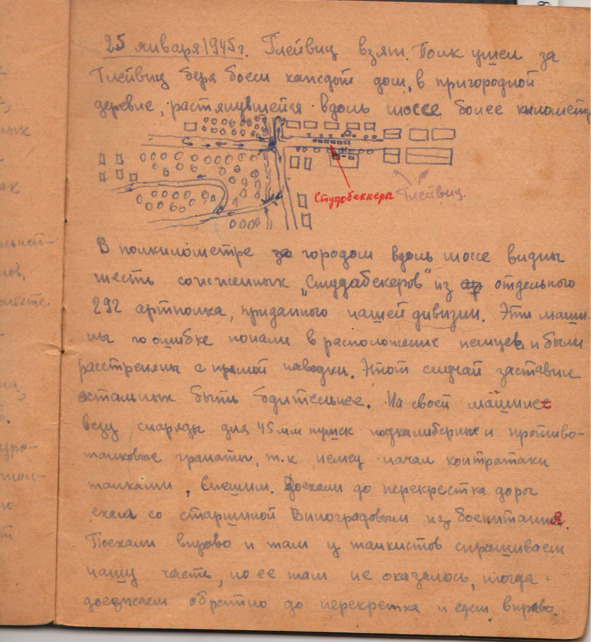 25 января 1945г. Глейвиц взят. Полк ушел за
Глейвиц беря боем каждый дом, в пригородной
деревне, растянувшейся вдоль шоссе более километр
Студобеккера
Глейвиц.
В полкилометре за городом вдоль шоссе видны
шесть сожженных „Студдабекеров" из отдельного
292 артполка, приданного нашей дивизии. Эти маши-
ны по ошибке попали в расположение немцев и были
расстреляны с прямой наводки. Этот случай заставил
остальных быть бдительнее. На своей машине
везу снаряды для 45мм пушек подкалиберные и противо-
танковые гранаты, т.к. немец начал контратаки
танками, спешим. Доехали до перекрестка дорог
ехали со старшиной Виноградовым из боепитания.
Поехали вправо и там у танкистов спрашиваем
нашу часть, но ее там не оказалось, тогда
доезжаем обратно до перекретка и едем вправо.